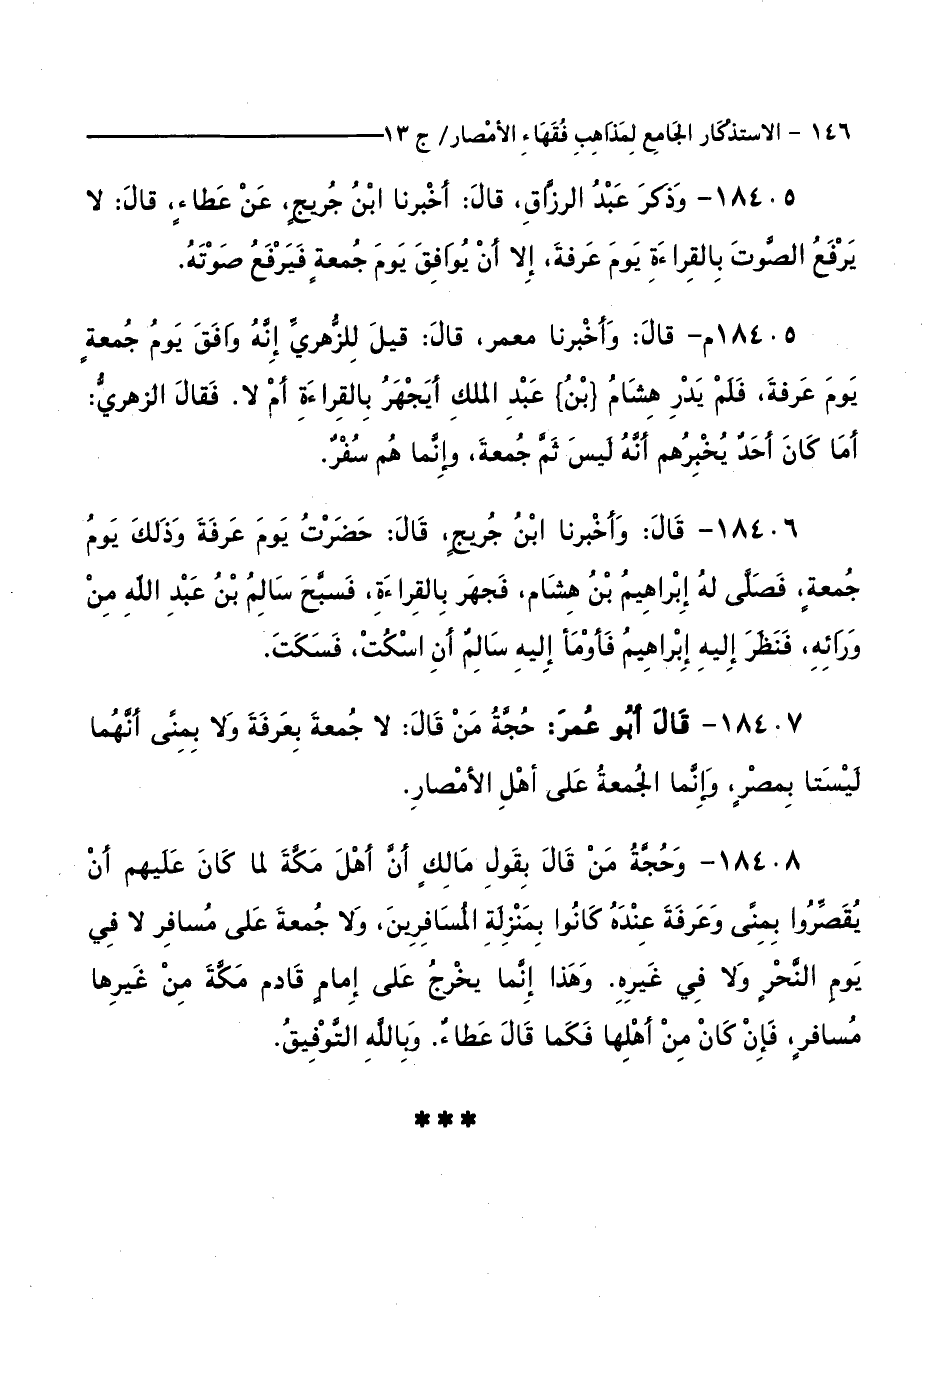 ١٤٦ - الاستذكار الجامع لِمَذَاهِبِ فُقَهَاءِ الأمْصار/ ج ١٣
١٨٤٠٥- وَذَكرَ عَبْدُ الرزَّاقِ، قالَ: أخْبرنا ابْنُ جُريجٍ، عَنْ عَطاءٍ، قالَ: لا
يَرْفَعُ الصَّوتَ بِالقراءَةِ يَومَ عَرفةَ، إلا أنْ يُوَافِقَ يَومَ جُمعةٍ فَيَرْفَعُ صَوْتَهُ.
١٨٤٠٥م- قالَ: وَأخْبرنا معمر، قالَ: قيلَ لِلزُّهريِّ إنَّهُ وَافَقَ يَومُ جُمعةٍ
يَومَ عَرفةَ، فَلَمْ يَدْرِ هِشَامُ {بْنُ} عَبْدِ الملكِ أيَجْهَرُ بالقراءَةِ أمْ لا. فَقالَ الزهريُّ:
أمَا كَانَ أحَدٌ يُخْبِرُهم أنَّهُ لَيسَ ثَمَّ جُمعةَ، وإنَّما هُم سُفْرٌ.
١٨٤٠٦- قَالَ: وَأخْبرنا ابْنُ جُريجٍ، قَالَ: حَضَرْتُ يَومَ عَرَفَةَ وَذَلكَ يَومُ
جُمعةٍ، فَصَلَّى لهُ إبْراهيمُ بْنُ هِشَام، فَجهَر بِالقراءَةِ، فَسبَّحَ سَالمُ بْنُ عَبْدِ اللهِ مِنْ
وَرَائِهِ، فَنَظَرَ إليهِ إبْراهيمُ فَأوْمَأ إليهِ سَالمٌ أنِ اسْكُتْ، فَسَكَتَ.
١٨٤٠٧- قَالَ أبُو عُمرَ: حُجَّةُ مَنْ قَالَ: لا جُمعةَ بِعَرفَةَ وَلا بِمِنًى أنَّهُما
لَيْسَتا بِمصْرٍ، وَإنَّما الجُمعةُ عَلى أهْلِ الأمْصارِ.
١٨٤٠٨- وَحُجَّةُ مَنْ قَالَ بِقَولِ مَالكٍ أنَّ أهْلَ مَكَّةَ لما كَانَ عَلَيهم أنْ
يُقَصِّرُوا بِمِنًى وَعَرفَةَ عِنْدَهُ كَانُوا بِمَنْزِلَةِ المُسَافِرِينَ، وَلا جُمعةَ عَلى مُسافر لا في
يَومِ النَّحْرِ وَلا فِي غَيرِهِ. وَهَذا إنَّما يخْرجُ عَلى إمامٍ قَادم مَكَّةَ مِنْ غَيرِها
مُسافرٍ، فَإنْ كَانْ مِنْ أهْلِها فَكَما قَالَ عَطاءٌ. وَبِاللَّهِ التَّوْفِيقُ.
***